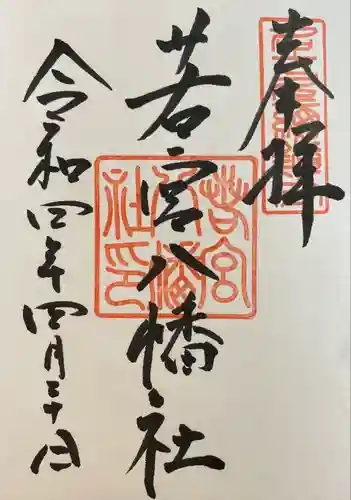 奉拝
若宮八幡社
令和四年四月三十日
若宮八幡社印